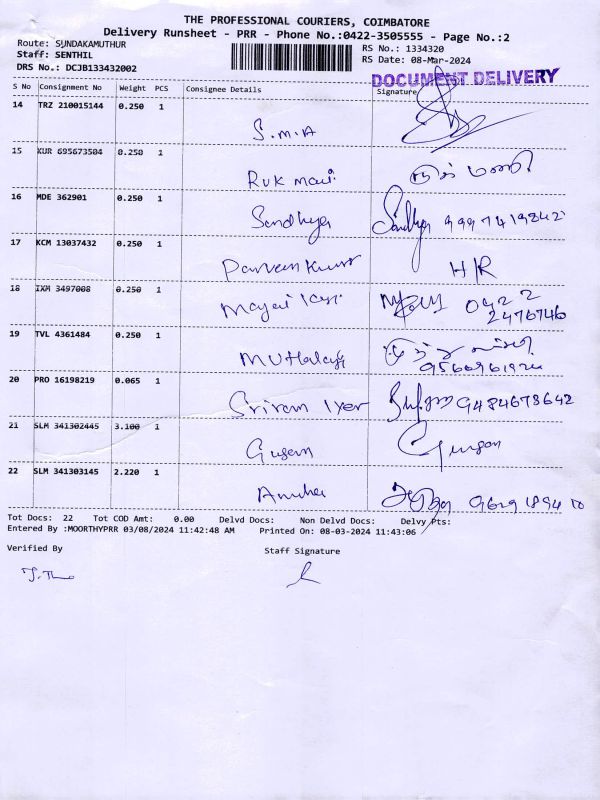 THE PROFESSIONAL COURIERS, COIMBATORE
Delivery Runsheet - PRR - Phone No.:0422-3505555 - Page No.:2
Route: SUNDAKAMUTHUR
RS No.: 1334320
Staff: SENTHIL
RS Date: 08-Mar-2024
DRS No.: DCJB133432002
DOCUMENT DELIVERY
S No Consignment No Weight PCS Consignee Details Signature
14 TRZ 210015144 0.250 1
S.M.A
15 KUR 695673504 0.250 1
Ruk mani
16 MDE 362901 0.250 1
Sandhya Sandhya 9997419842
17 KCM 13037432 0.250 1
Parveen Kumar H/R
18 IXM 3497008 0.250 1
0422
2476746
19 TVL 4361484 0.250 1
9566961924
20 PRO 16198219 0.065 1
Sriram Iyer 9484678642
21 SLM 341302445 3.100 1
Gugan Gugan
22 SLM 341303145 2.220 1
9629189410
Tot Docs: 22 Tot COD Amt: 0.00 Delvd Docs: Non Delvd Docs: Delvy Pts:
Entered By :MOORTHYPRR 03/08/2024 11:42:48 AM Printed On: 08-03-2024 11:43:06
Verified By Staff Signature